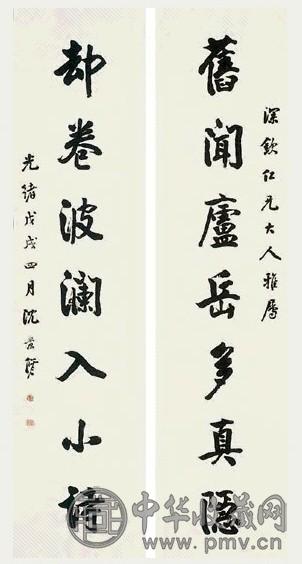 深欽仁兄大人雅屬
舊聞廬岳多真隱
却卷波瀾入小詩
光緒戊戌四月沈景修
中华收藏网
www.pmv.cn